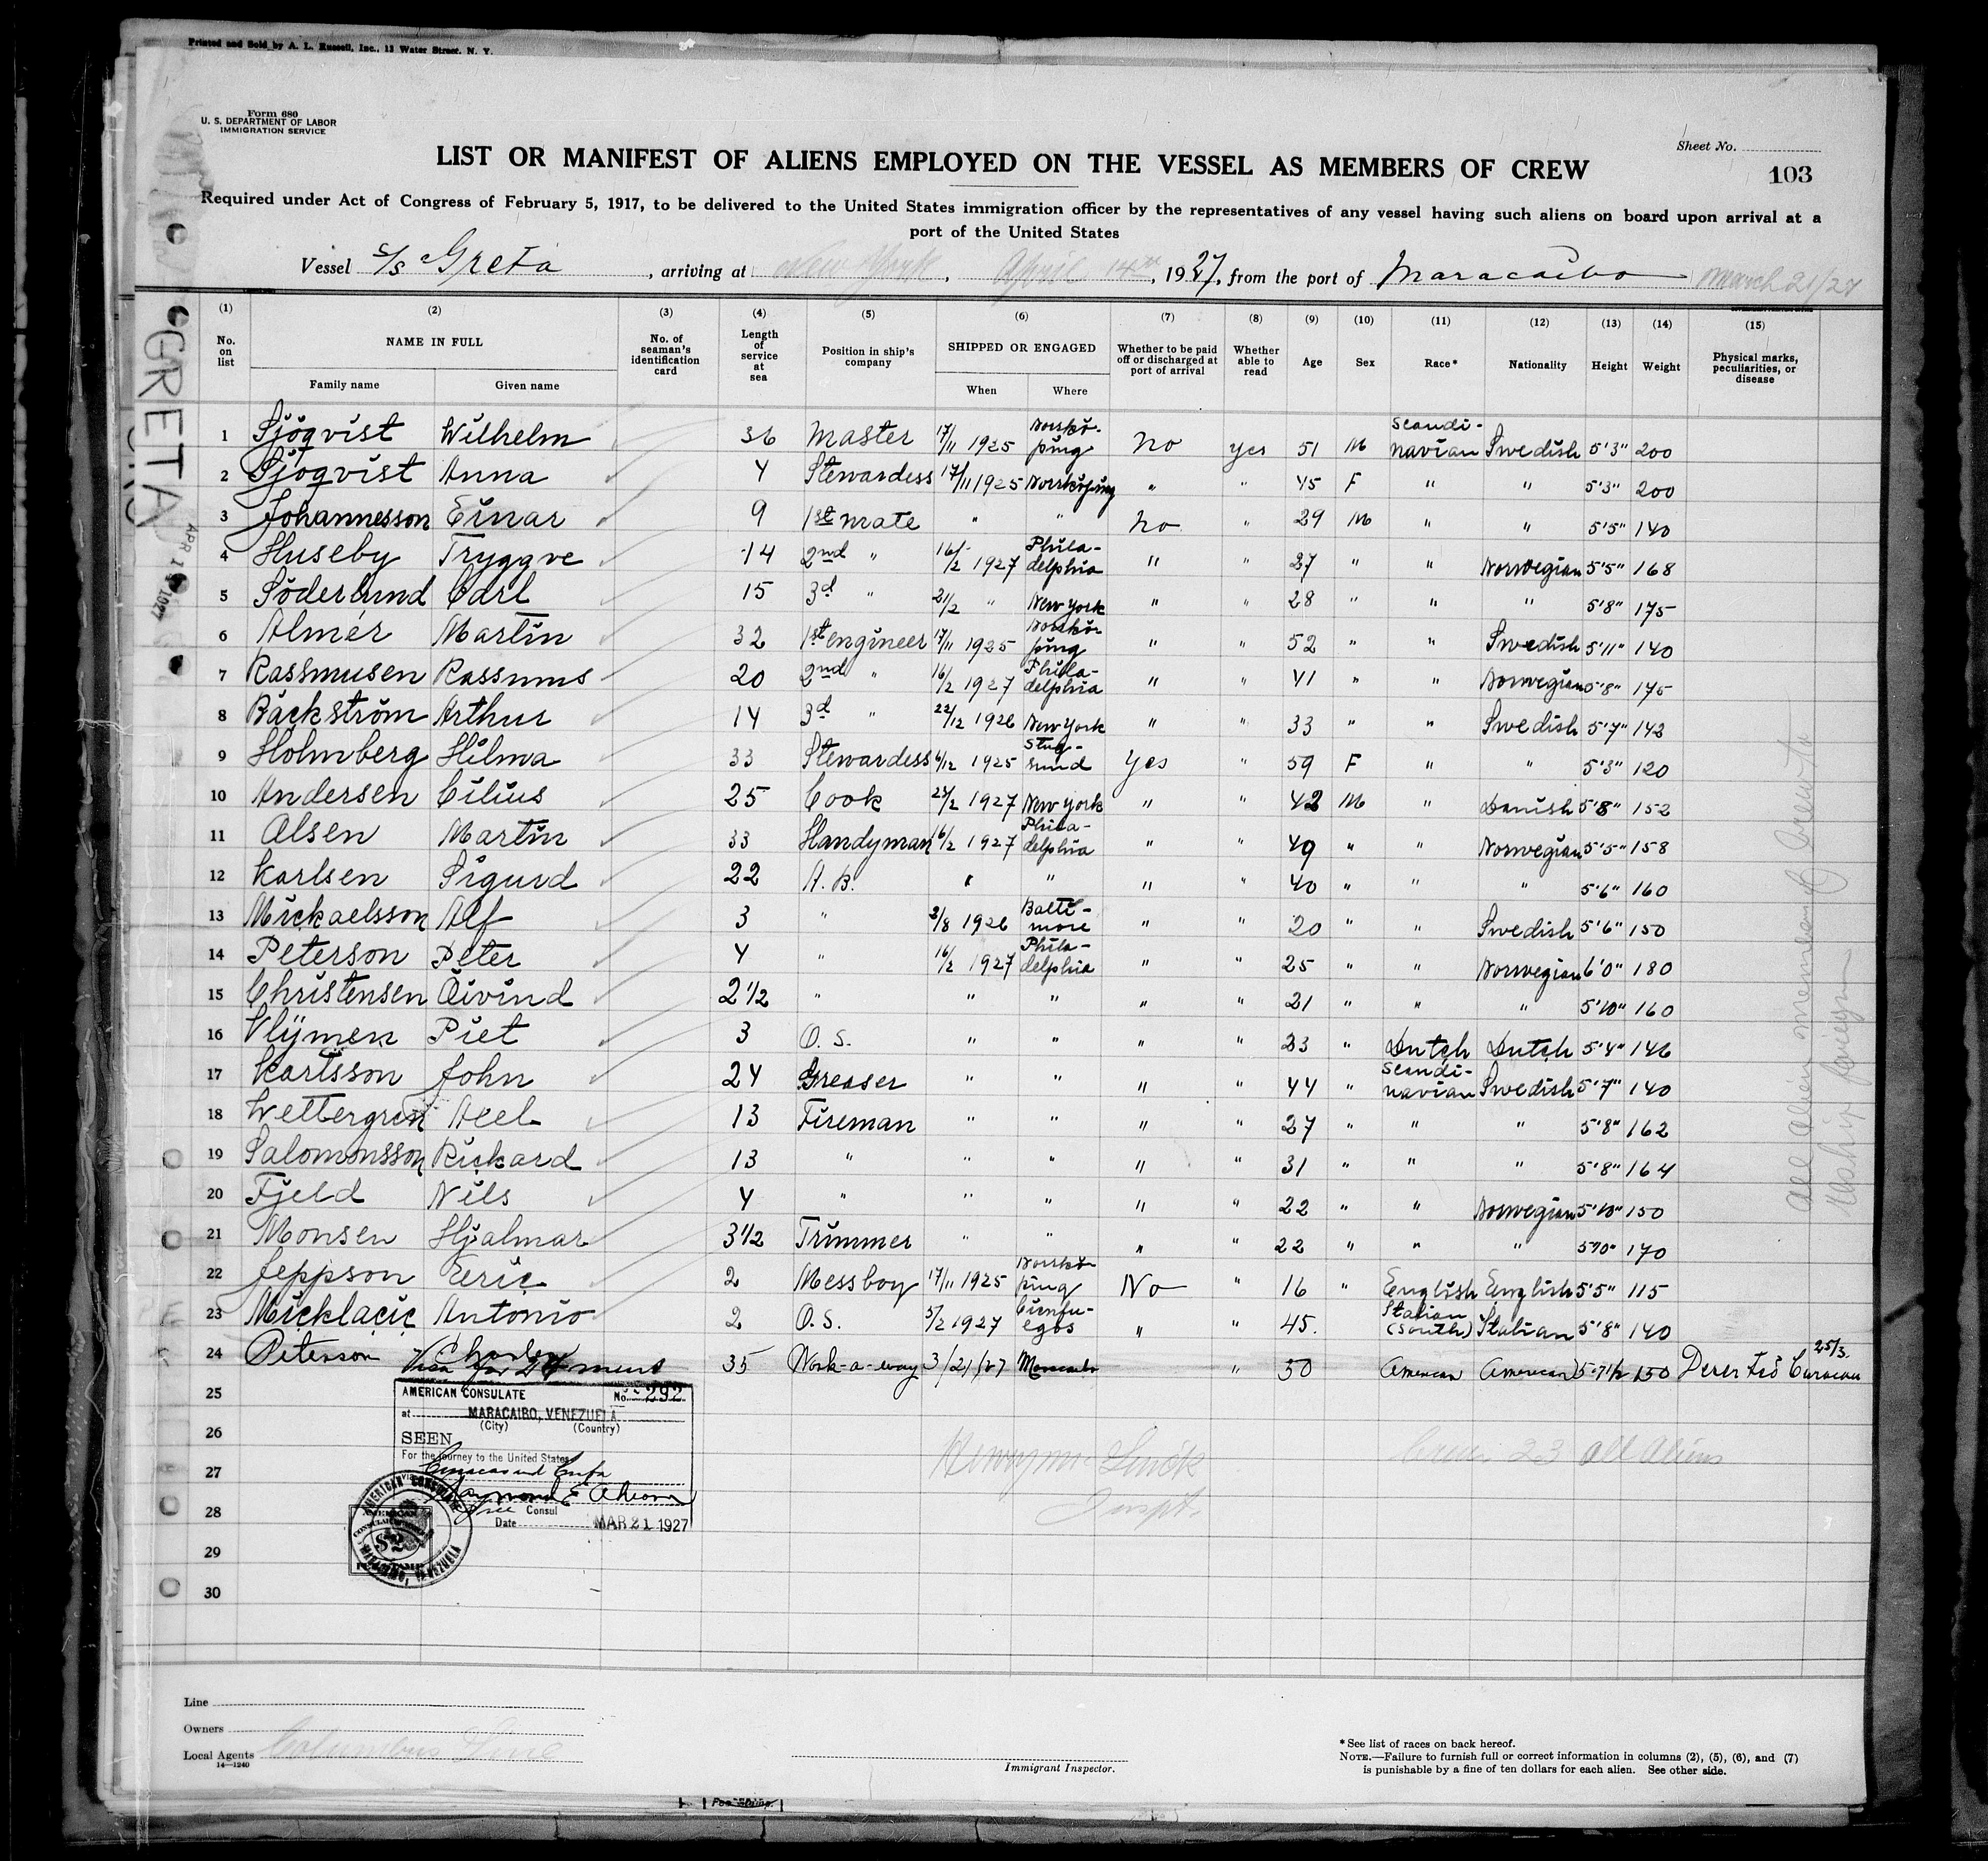 Printed and Sold by A. L. Russell, Inc., 12 Water Street, N. Y.
Form 680
U. S. DEPARTMENT OF LABOR
IMMIGRATION SERVICE
Sheet No.
103
LIST OR MANIFEST OF ALIENS EMPLOYED ON THE VESSEL AS MEMBERS OF CREW
Required under Act of Congress of February 5, 1917, to be delivered to the United States immigration officer by the representatives of any vessel having such aliens on board upon arrival at a
port of the United States
Vessel S/S Greta, arriving at New York, April 14th, 1927, from the port of Maracaibo March 21/27
GRETA
APR 14 1927
(1) (2) (3) (4) (5) (6) (7) (8) (9) (10) (11) (12) (13) (14) (15)
No. on list NAME IN FULL No. of seaman's identification card Length of service at sea Position in ship's company SHIPPED OR ENGAGED Whether to be paid off or discharged at port of arrival Whether able to read Age Sex Race* Nationality Height Weight Physical marks, peculiarities, or disease
Family name Given name When Where
1 Sjöqvist Wilhelm 36 Master 17/11 1925 Norrkö-ping No yes 51 M Scandi-navian Swedish 5'3" 200
2 Sjöqvist Anna 4 Stewardess 17/11 1925 Norrköping " " 45 F " " 5'3" 200
3 Johannesson Einar 9 1st mate " " No " 29 M " " 5'5" 140
4 Huseby Tryggve 14 2nd " 16/2 1927 Phila-delphia " " 37 " " Norwegian 5'5" 168
5 Söderlund Carl 15 3d " 21/2 " New York " " 28 " " " 5'8" 175
6 Almér Martin 32 1st engineer 17/11 1925 Norrkö-ping " " 52 " " Swedish 5'11" 140
7 Rassmusen Rassmus 20 2nd " 16/2 1927 Phila-delphia " " 41 " " Norwegian 5'8" 175
8 Bäckström Arthur 14 3d " 22/12 1926 New York " " 33 " " Swedish 5'7" 142
9 Holmberg Hilma 33 Stewardess 6/12 1925 Stug-sund Yes " 59 F " " 5'3" 120
10 Andersen Cilius 25 Cook 24/2 1927 New York " " 42 M " Danish 5'8" 152
11 Olsen Martin 33 Handyman 16/2 1927 Phila-delphia " " 49 " " Norwegian 5'5" 158
12 Karlsen Sigurd 22 A. B. " " " " 40 " " " 5'6" 160
13 Mickaelsson Alf 3 " 2/8 1926 Balti-more " " 20 " " Swedish 5'6" 150
14 Peterson Peter 4 " 16/2 1927 Phila-delphia " " 25 " " Norwegian 6'0" 180
15 Christensen Öivind 2 1/2 " " " " " 21 " " " 5'10" 160
16 Vlijmen Piet 3 O. S. " " " " 23 " Dutch Dutch 5'4" 146
17 Karlsson John 24 Greaser " " " " 44 " Scandi-navian Swedish 5'7" 140
18 Wettergren Axel 13 Fireman " " " " 27 " " " 5'8" 162
19 Salomonsson Rickard 13 " " " " " 31 " " " 5'8" 164
20 Fjeld Nils 4 " " " " " 22 " " Norwegian 5'10" 150
21 Monsen Hjalmar 3 1/2 Trimmer " " " " 22 " " " 5'10" 170
22 Jeppson Eric 2 Messboy 17/11 1925 Norrkö-ping No " 16 " English English 5'5" 115
23 Micklacic Antonio 2 O. S. 5/2 1927 Cienfu-egos " " 45. Italian (South) Italian 5'8" 140
24 Peterson Charley 35 Work-a-way 3/21/27 Maracaibo " 50 American American 5-7 1/2 150 25/3.
Visa for 24 mens
25
26
27
28
29
30
AMERICAN CONSULATE No. 292
at MARACAIBO, VENEZUELA
(City) (Country)
SEEN
For the journey to the United States
via
Vice Consul
Date MAR 21 1927
AMERICAN CONSULATE
MARACAIBO, VENEZUELA
$2
Inspt.
Crew 23 all aliens
All alien members of crew to
reship foreign
Line
Owners
Local Agents Columbus Line
14—1240
Immigrant Inspector.
*See list of races on back hereof.
NOTE.—Failure to furnish full or correct information in columns (2), (5), (6), and (7)
is punishable by a fine of ten dollars for each alien. See other side.